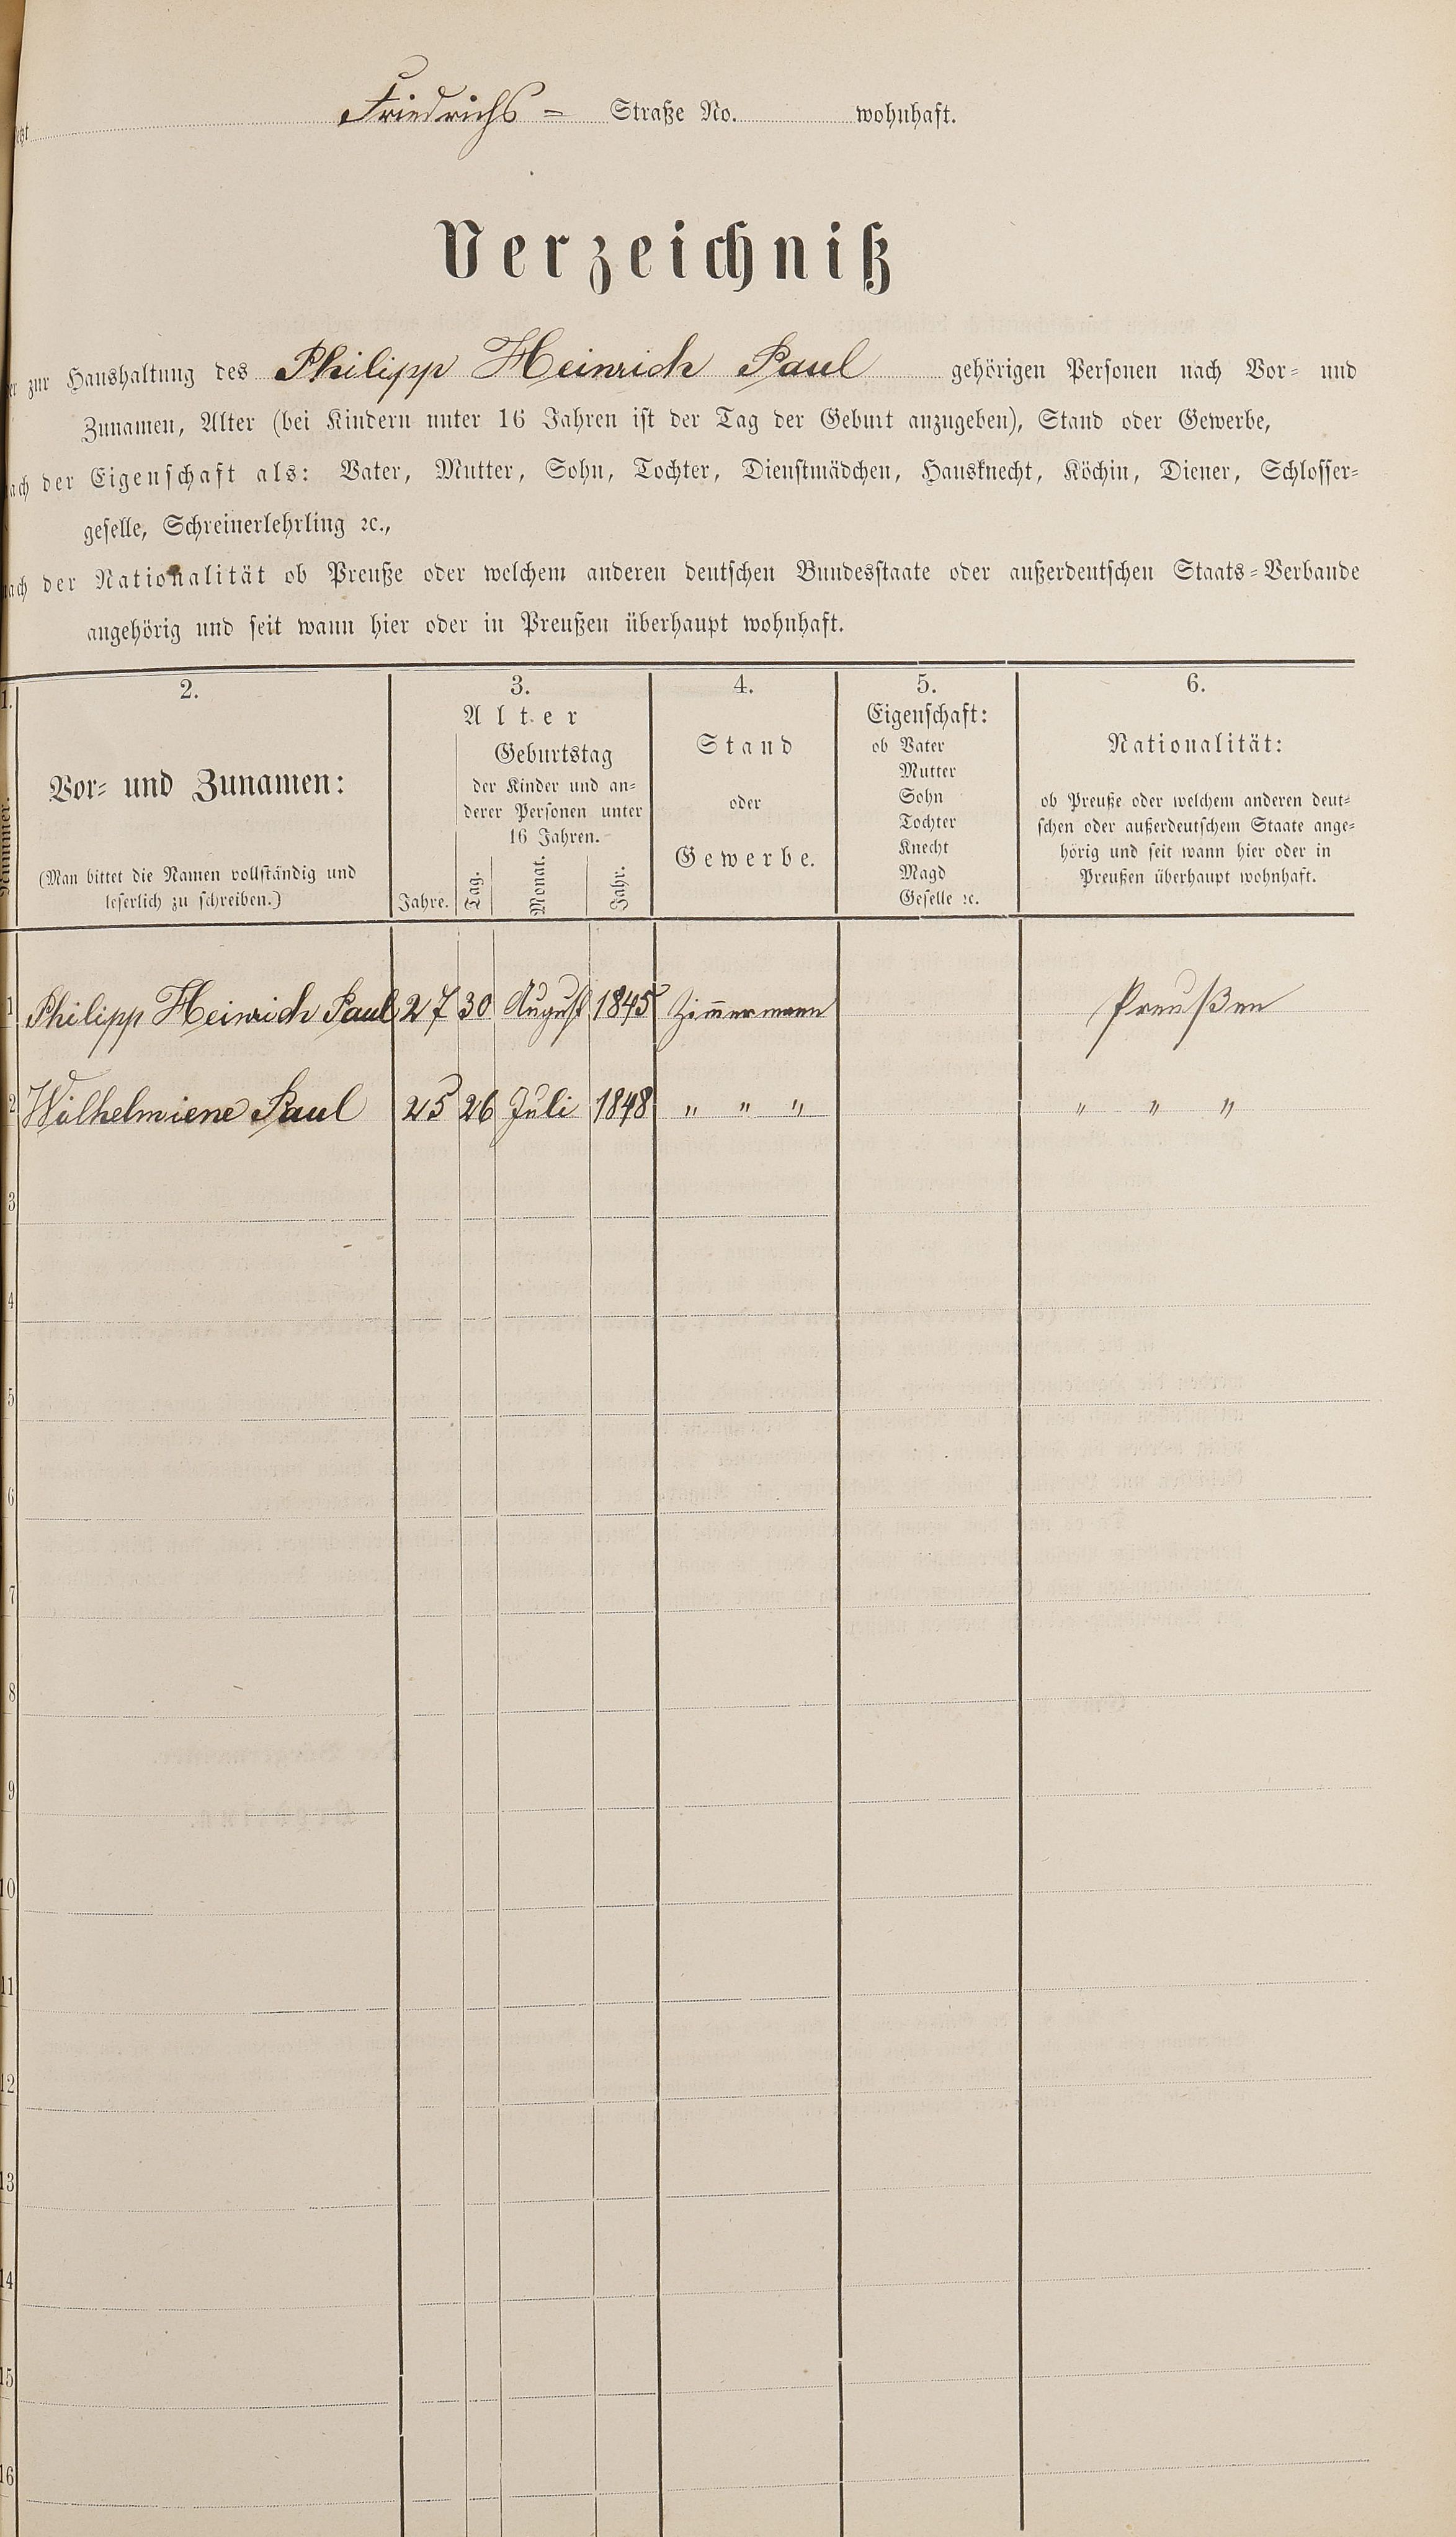 Friedrichs= Straße No. wohnhaft.
Verzeichniß
zur Haushaltung des Philipp Heinrich Paul gehörigen Personen nach Vor= und
Zunamen, Alter (bei Kindern unter 16 Jahren ist der Tag der Geburt anzugeben), Stand oder Gewerbe,
nach der Eigenschaft als: Vater, Mutter, Sohn, Tochter, Dienstmädchen, Hausknecht, Köchin, Diener, Schlosser=
geselle, Schreinerlehrling ꝛc.,
nach der Nationalität ob Preuße oder welchem anderen deutschen Bundesstaate oder außerdeutschen Staats=Verbande
angehörig und seit wann hier oder in Preußen überhaupt wohnhaft.
1. 2. 3. 4. 5. 6.
Nummer.
Vor= und Zunamen:
(Man bittet die Namen vollständig und
leserlich zu schreiben.)
Alter
Jahre.
Geburtstag
der Kinder und an=
derer Personen unter
16 Jahren.
Tag. Monat. Jahr.
Stand
oder
Gewerbe.
Eigenschaft:
ob Vater
Mutter
Sohn
Tochter
Knecht
Magd
Geselle ꝛc.
Nationalität:
ob Preuße oder welchem anderen deut=
schen oder außerdeutschem Staate ange=
hörig und seit wann hier oder in
Preußen überhaupt wohnhaft.
1 Philipp Heinrich Paul 27 30 August 1845 Zim̄ermann Preußen
2 Wilhelmiene Paul 25 26 Juli 1848 " " " " " "
3
4
5
6
7
8
9
10
11
12
13
14
15
16